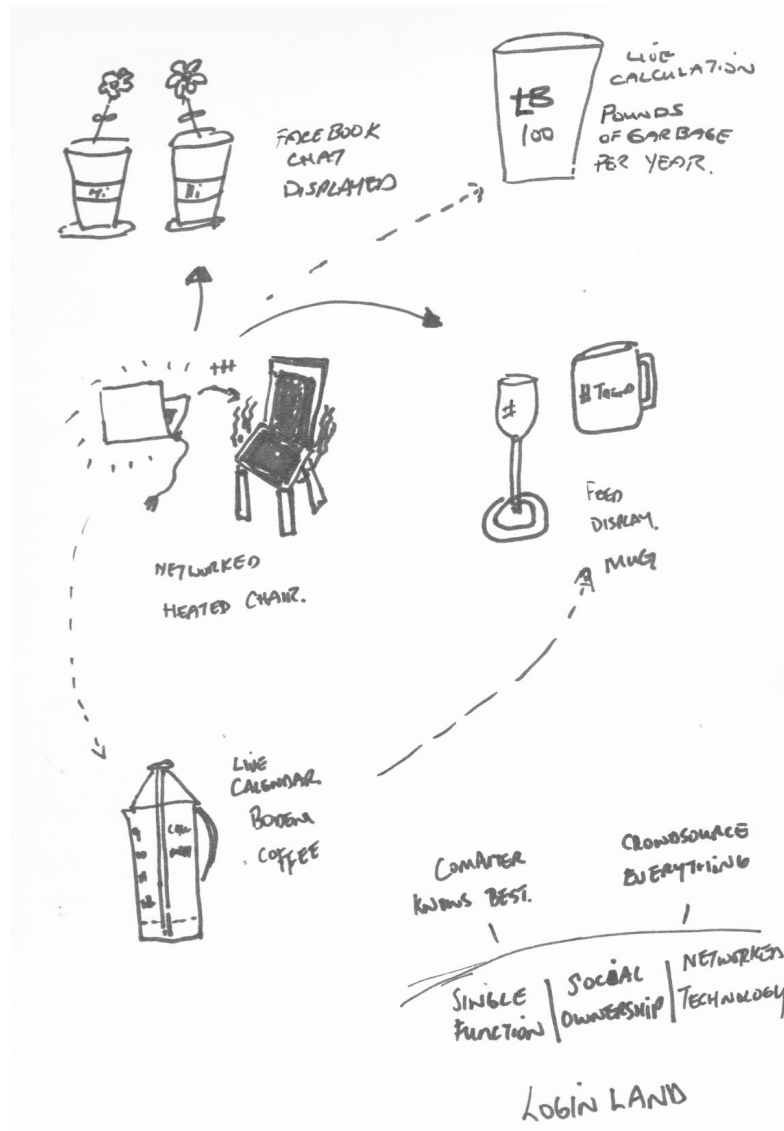 Hi
Hi
FACEBOOK
CHAT
DISPLAYED
LB
100
LIVE
CALCULATION
POUNDS
OF GARBAGE
PER YEAR.
#
# TREND
FEED
DISPLAY.
MUG
NETWORKED
HEATED CHAIR.
LIVE
CALENDAR
BODEM
COFFEE
9
10
11
12
COMPUTER
KNOWS BEST.
CROWDSOURCE
EVERYTHING
SINGLE
FUNCTION
SOCIAL
OWNERSHIP
NETWORKED
TECHNOLOGY
LOGIN LAND